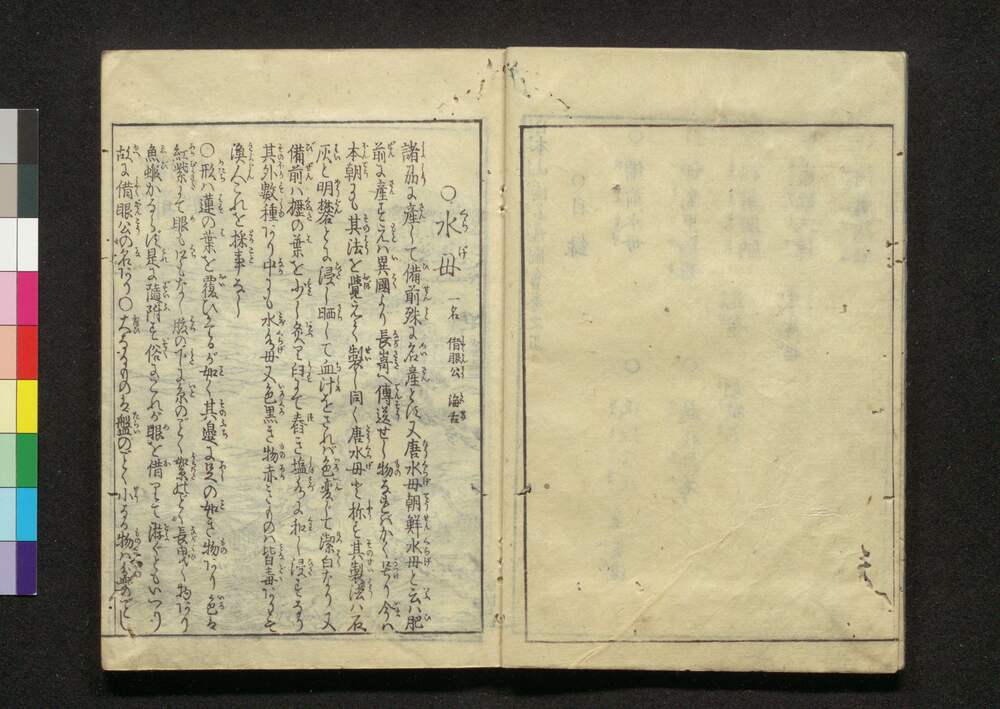 ○水母 一名 借眼公 海舌
諸州に産して備前殊に名産とす又唐水母朝鮮水母と云ハ肥
前に産をそへハ異國より長嵜へ傳送せし物なれバかく号り今ハ
本朝にも其法を覺えて製し同く唐水母と称す其製法ハ石
灰と明礬とに浸し晒して血汁をされバ色変じて潔白なり又
備前ハ櫪の葉を少し灸り臼にて舂き塩水に和し浸すなり
其外數種あり中にも水水母又色黒き物赤きものハ皆毒ありとて
漁人これを採事なし
○形ハ蓮の葉を覆ひたるが如く其邉に足の如き物あり色は
紅紫にて眼も口もなし腹の下に糸のごとく絮のごとく長曳く物あり
魚蝦かならず是に隨附す俗にこれが眼を借りて游ぐともいへり
故に借眼公の名あり○大なるものは盤のごとく小なる物ハ盂のごとし